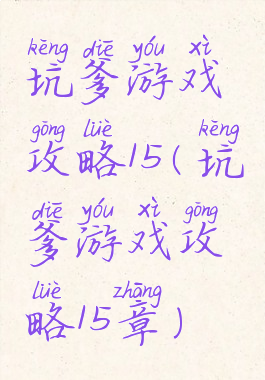 kēng diē yóu xì
坑爹游戏
gōng lüè kēng
攻略15(坑
diē yóu xì gōng
爹游戏攻
lüè zhāng
略15章)